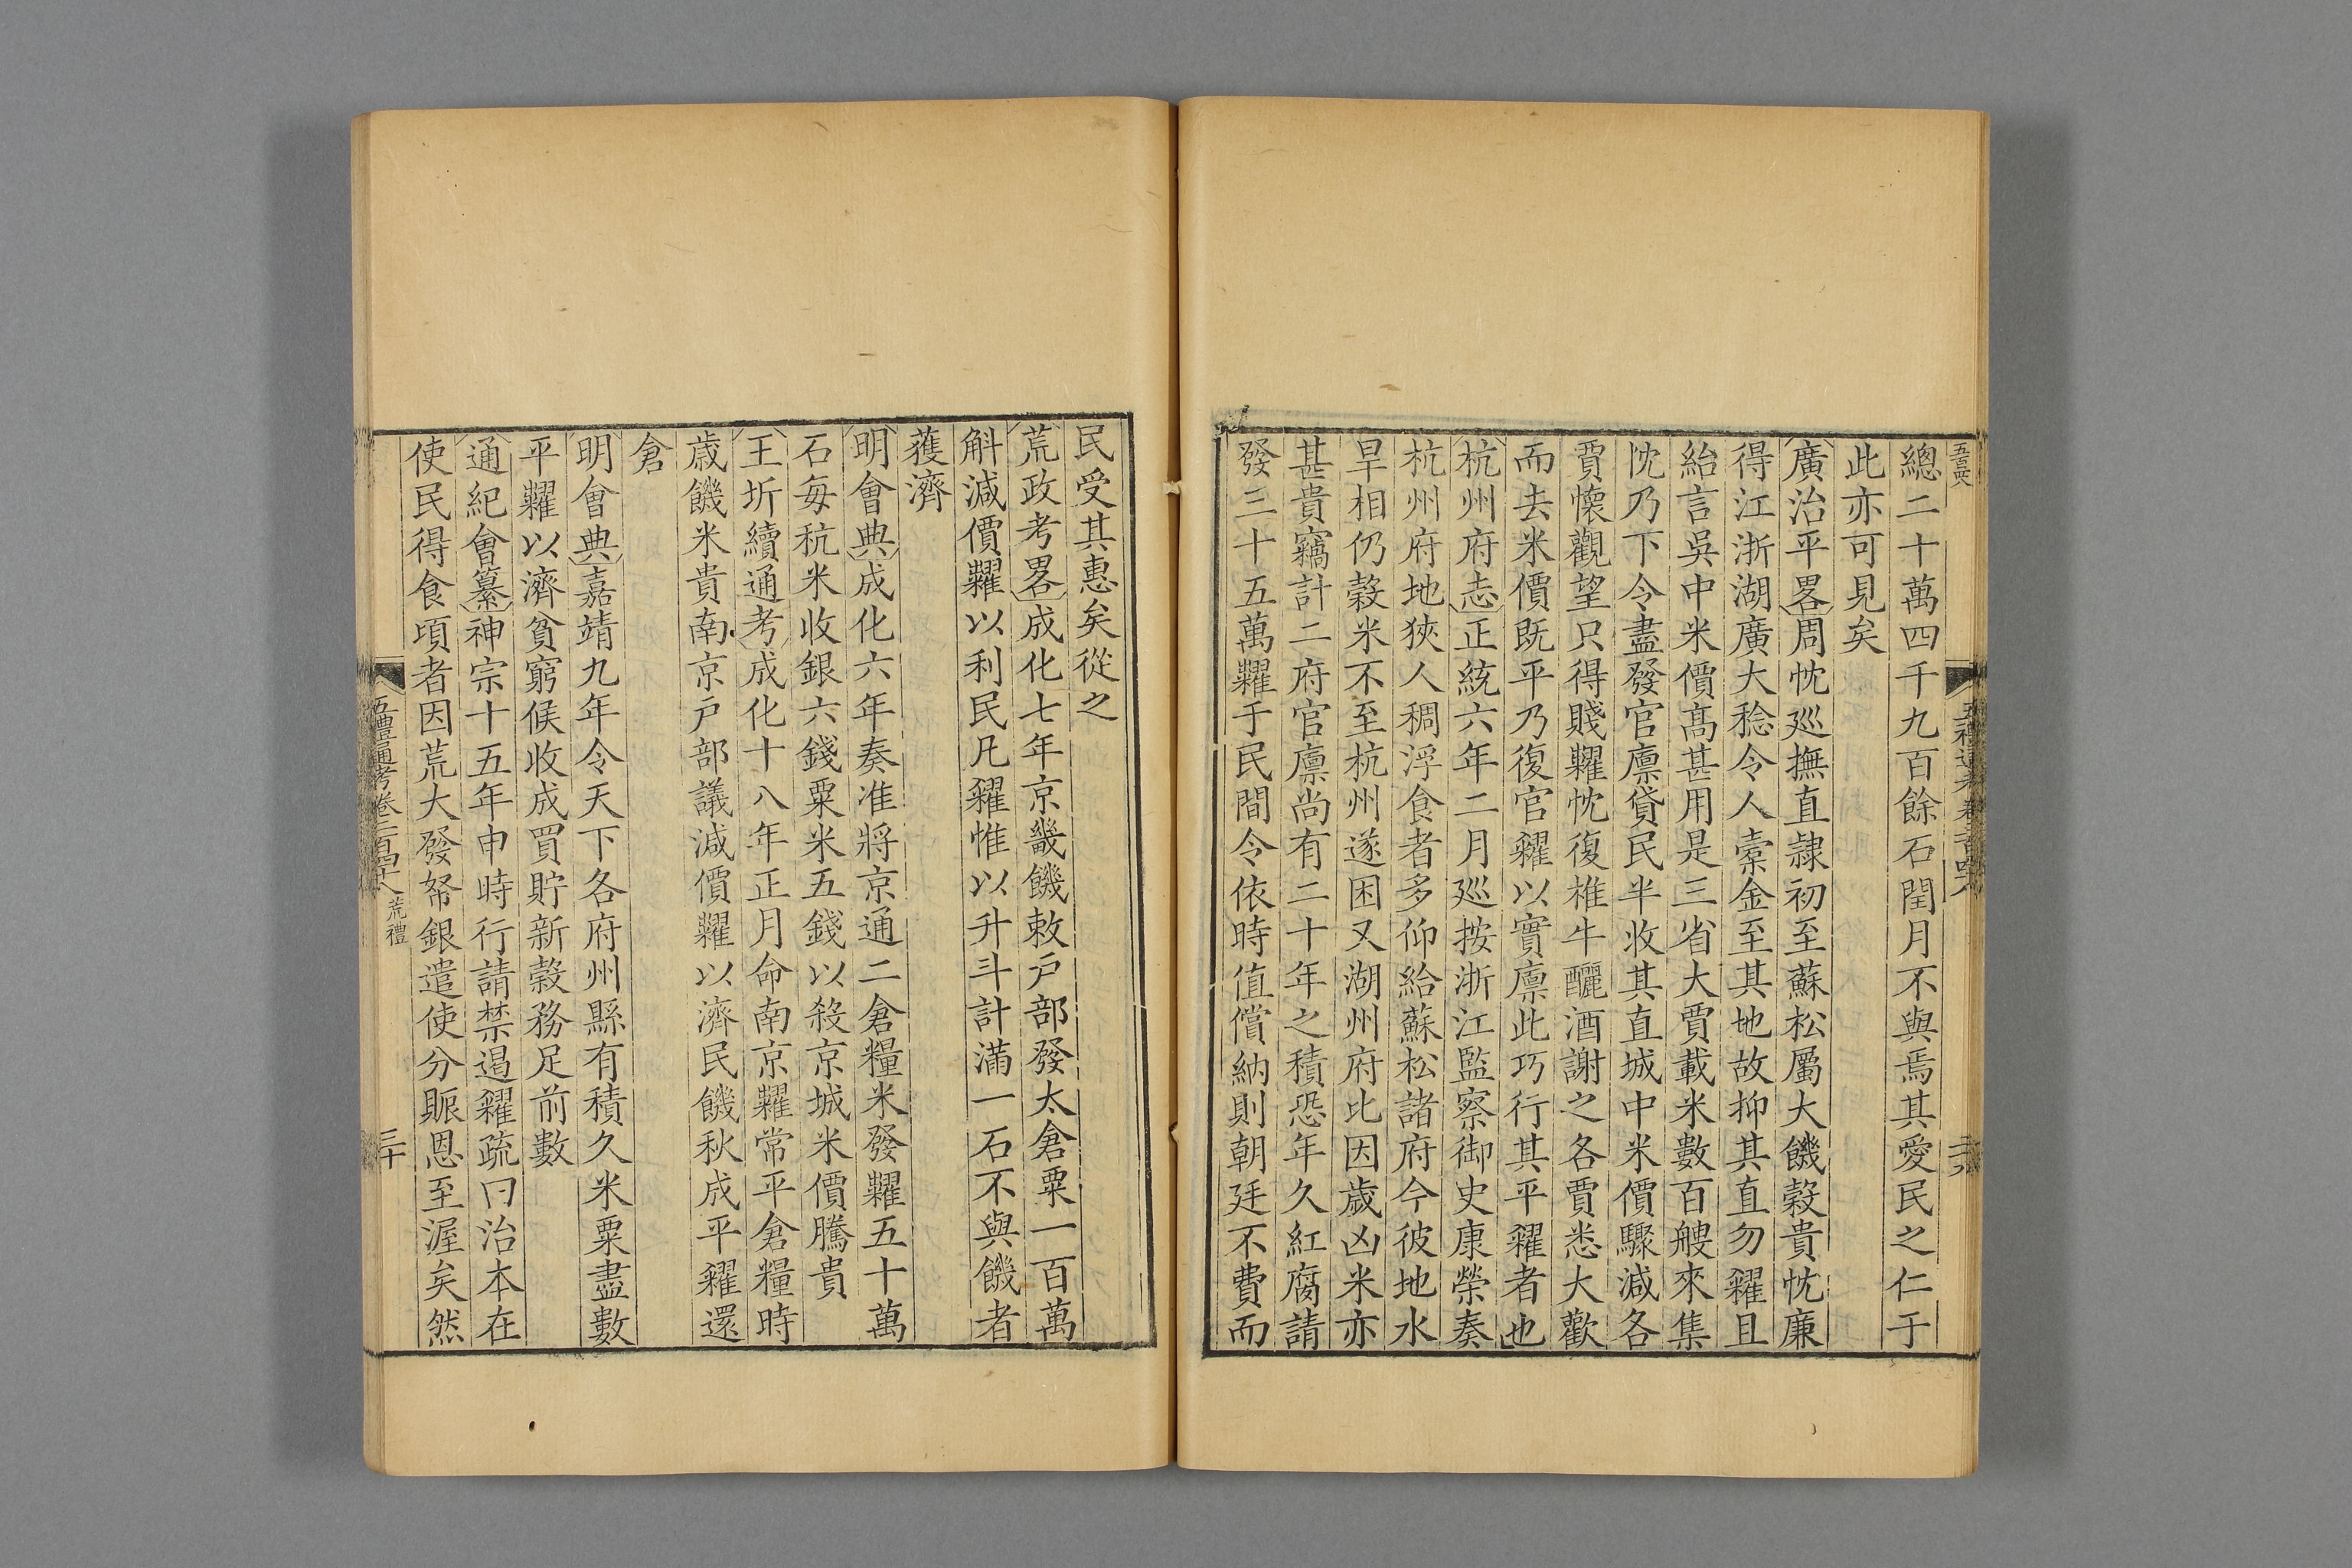 總二十萬四千九百餘石閏月不與焉其愛民之仁于
此亦可見矣
廣治平畧周忱廵撫直隷初至蘇松屬大饑穀貴忱廉
得江浙湖廣大稔令人橐金至其地故抑其直勿糴且
紿言吳中米價髙甚用是三省大賈載米數百艘來集
忱乃下令盡發官廩貸民半收其直城中米價驟減各
賈懷觀望只得賤糶忱復椎牛釃酒謝之各賈悉大歡
而去米價既平乃復官糴以實廩此巧行其平糴者也
杭州府志正統六年二月廵按浙江監察御史康榮奏
杭州府地狹人稠浮食者多仰給蘇松諸府今彼地水
旱相仍穀米不至杭州遂困又湖州府比因歲凶米亦
甚貴竊計二府官廩尚有二十年之積恐年久紅腐請
發三十五萬糶于民間令依時值償納則朝廷不費而
民受其惠矣從之
荒政考畧成化七年京畿饑敕戶部發太倉粟一百萬
斛減價糶以利民凡糴惟以升斗計滿一石不與饑者
蒦濟
明會典成化六年奏准將京通二倉糧米發糶五十萬
石每秔米收銀六錢粟米五錢以殺京城米價騰貴
王圻續通考成化十八年正月命南京糶常平倉糧時
歲饑米貴南京戶部議減價糶以濟民饑秋成平糴還
倉
明會典嘉靖九年令天下各府州縣有積久米粟盡數
平糶以濟貧窮候收成買貯新穀務足前數
通紀會纂神宗十五年申時行請禁遏糴疏曰治本在
使民得食頃者因荒大發帑銀遣使分賑恩至渥矣然
五禮通考卷二百四十八 荒禮
三十